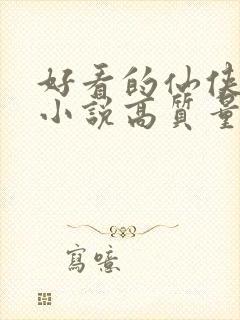 好看的仙侠
小说高质量
寫噫